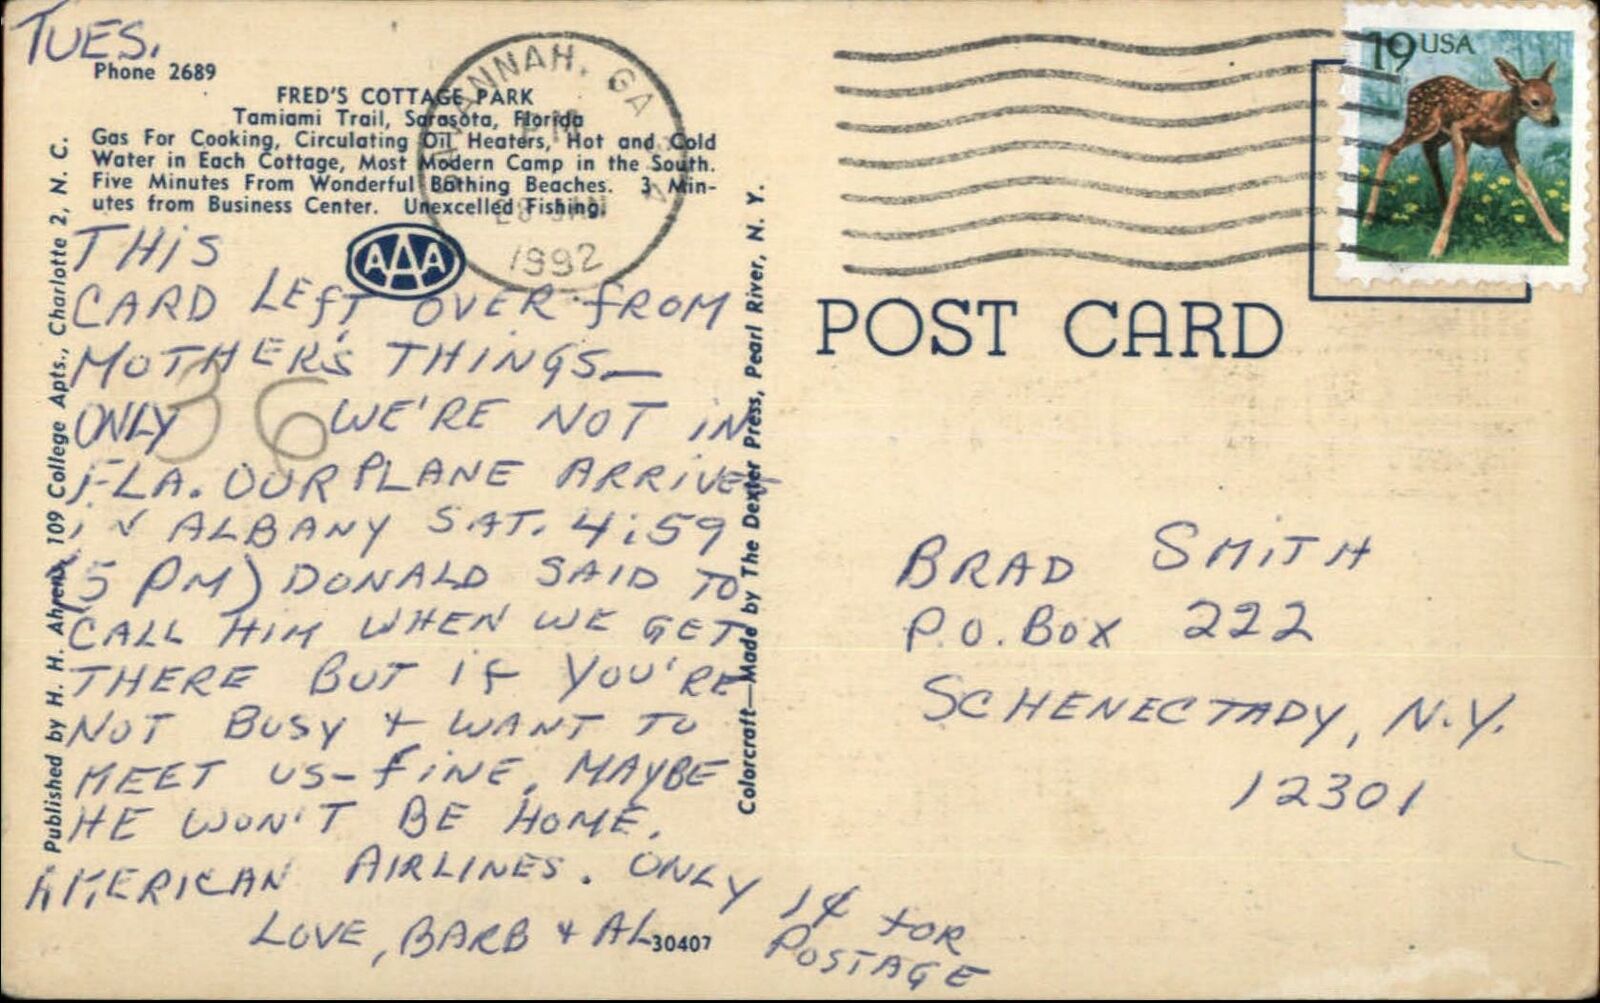 TUES.
Phone 2689
FRED'S COTTAGE PARK
Tamiami Trail, Sarasota, Florida
Gas For Cooking, Circulating Oil Heaters, Hot and Cold
Water in Each Cottage, Most Modern Camp in the South.
Five Minutes From Wonderful Bathing Beaches. 3 Min-
utes from Business Center. Unexcelled Fishing.
AAA
SAVANNAH, GA
PM
28 JAN
1992
19 USA
POST CARD
THIS
CARD LEFT OVER FROM
MOTHER'S THINGS—
ONLY WE'RE NOT IN
FLA. OUR PLANE ARRIVES
IN ALBANY SAT. 4:59
(5 PM) DONALD SAID TO
CALL HIM WHEN WE GET
THERE BUT IF YOU'RE
NOT BUSY + WANT TO
MEET US - FINE. MAYBE
HE WON'T BE HOME.
AMERICAN AIRLINES. ONLY 1¢ FOR
POSTAGE
LOVE, BARB + AL
36
30407
Published by H. H. Ahrens, 109 College Apts., Charlotte 2, N. C.
Colorcraft—Made by The Dexter Press, Pearl River, N. Y.
BRAD SMITH
P.O. BOX 222
SCHENECTADY, N.Y.
12301